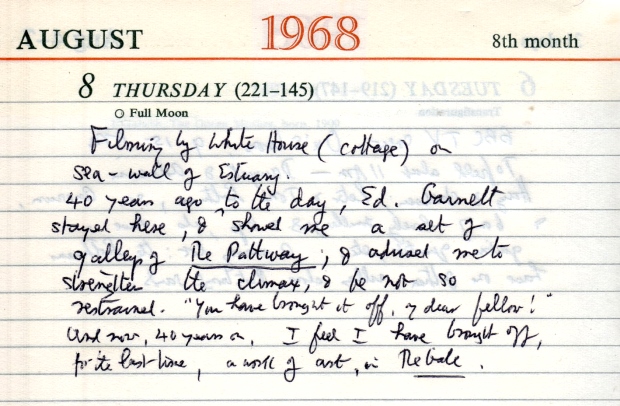 AUGUST 1968 8th month
8 THURSDAY (221–145)
Full Moon
Filming by White House (cottage) on
sea-wall of Estuary.
40 years ago to the day, Ed. Garnett
stayed here, & showed me a set of
galleys of The Pathway, & advised me to
strengthen the climax, & be not so
restrained. "You have brought it off, my dear fellow!"
And now, 40 years on, I feel I have brought off,
for the last time, a work of art, in The